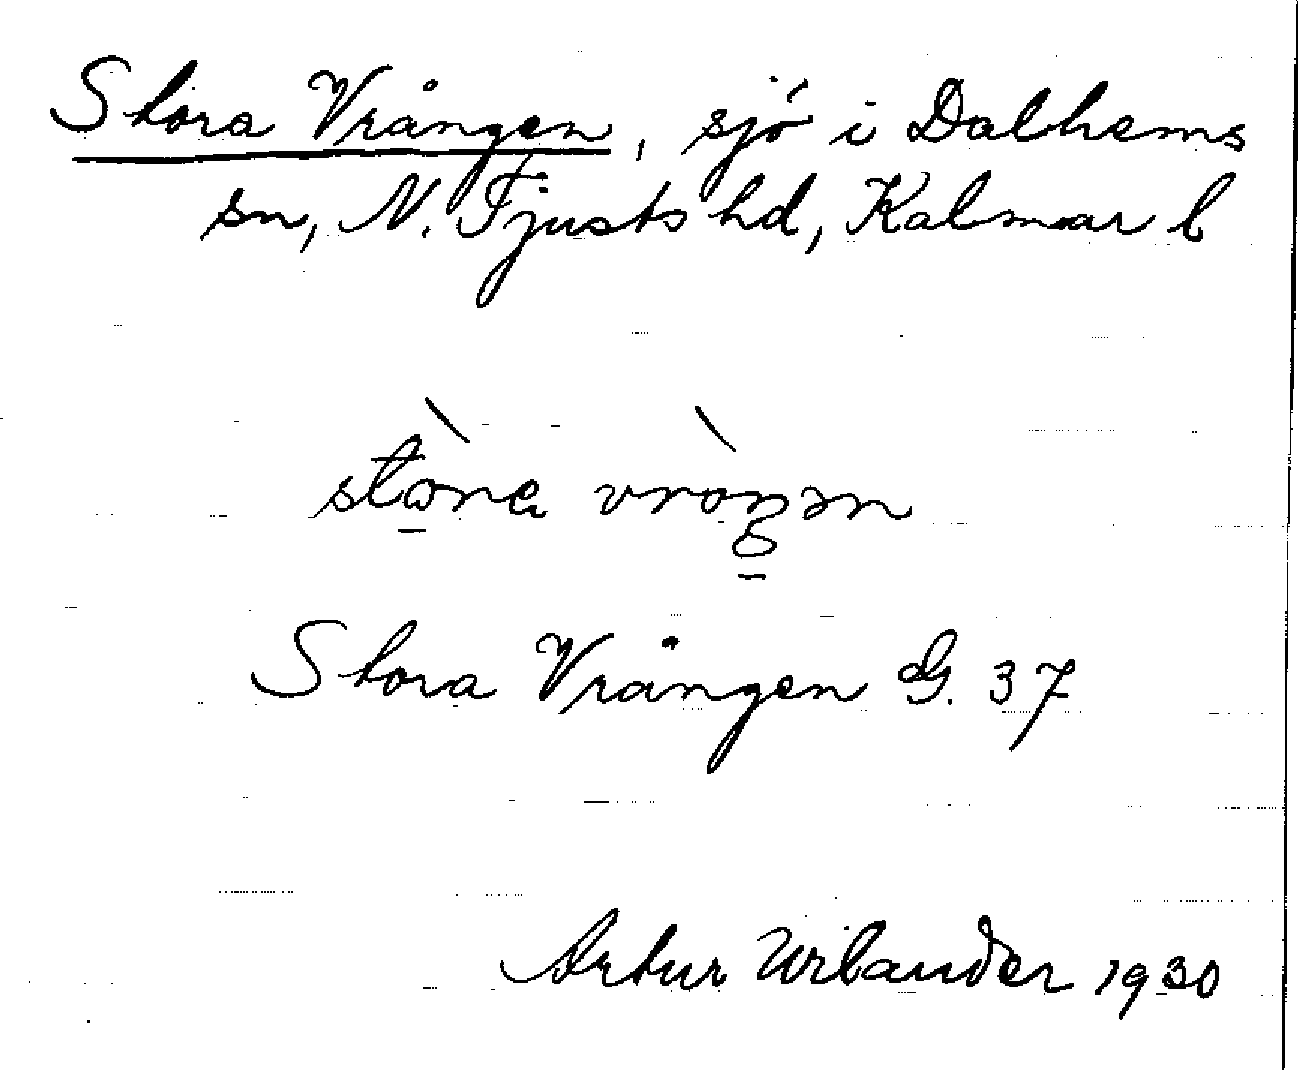 Stora Vrången, sjö i Dalhems
sn, N. Tjusts hd, Kalmar l
Stora Vrången G. 37
Artur Wilander 1930